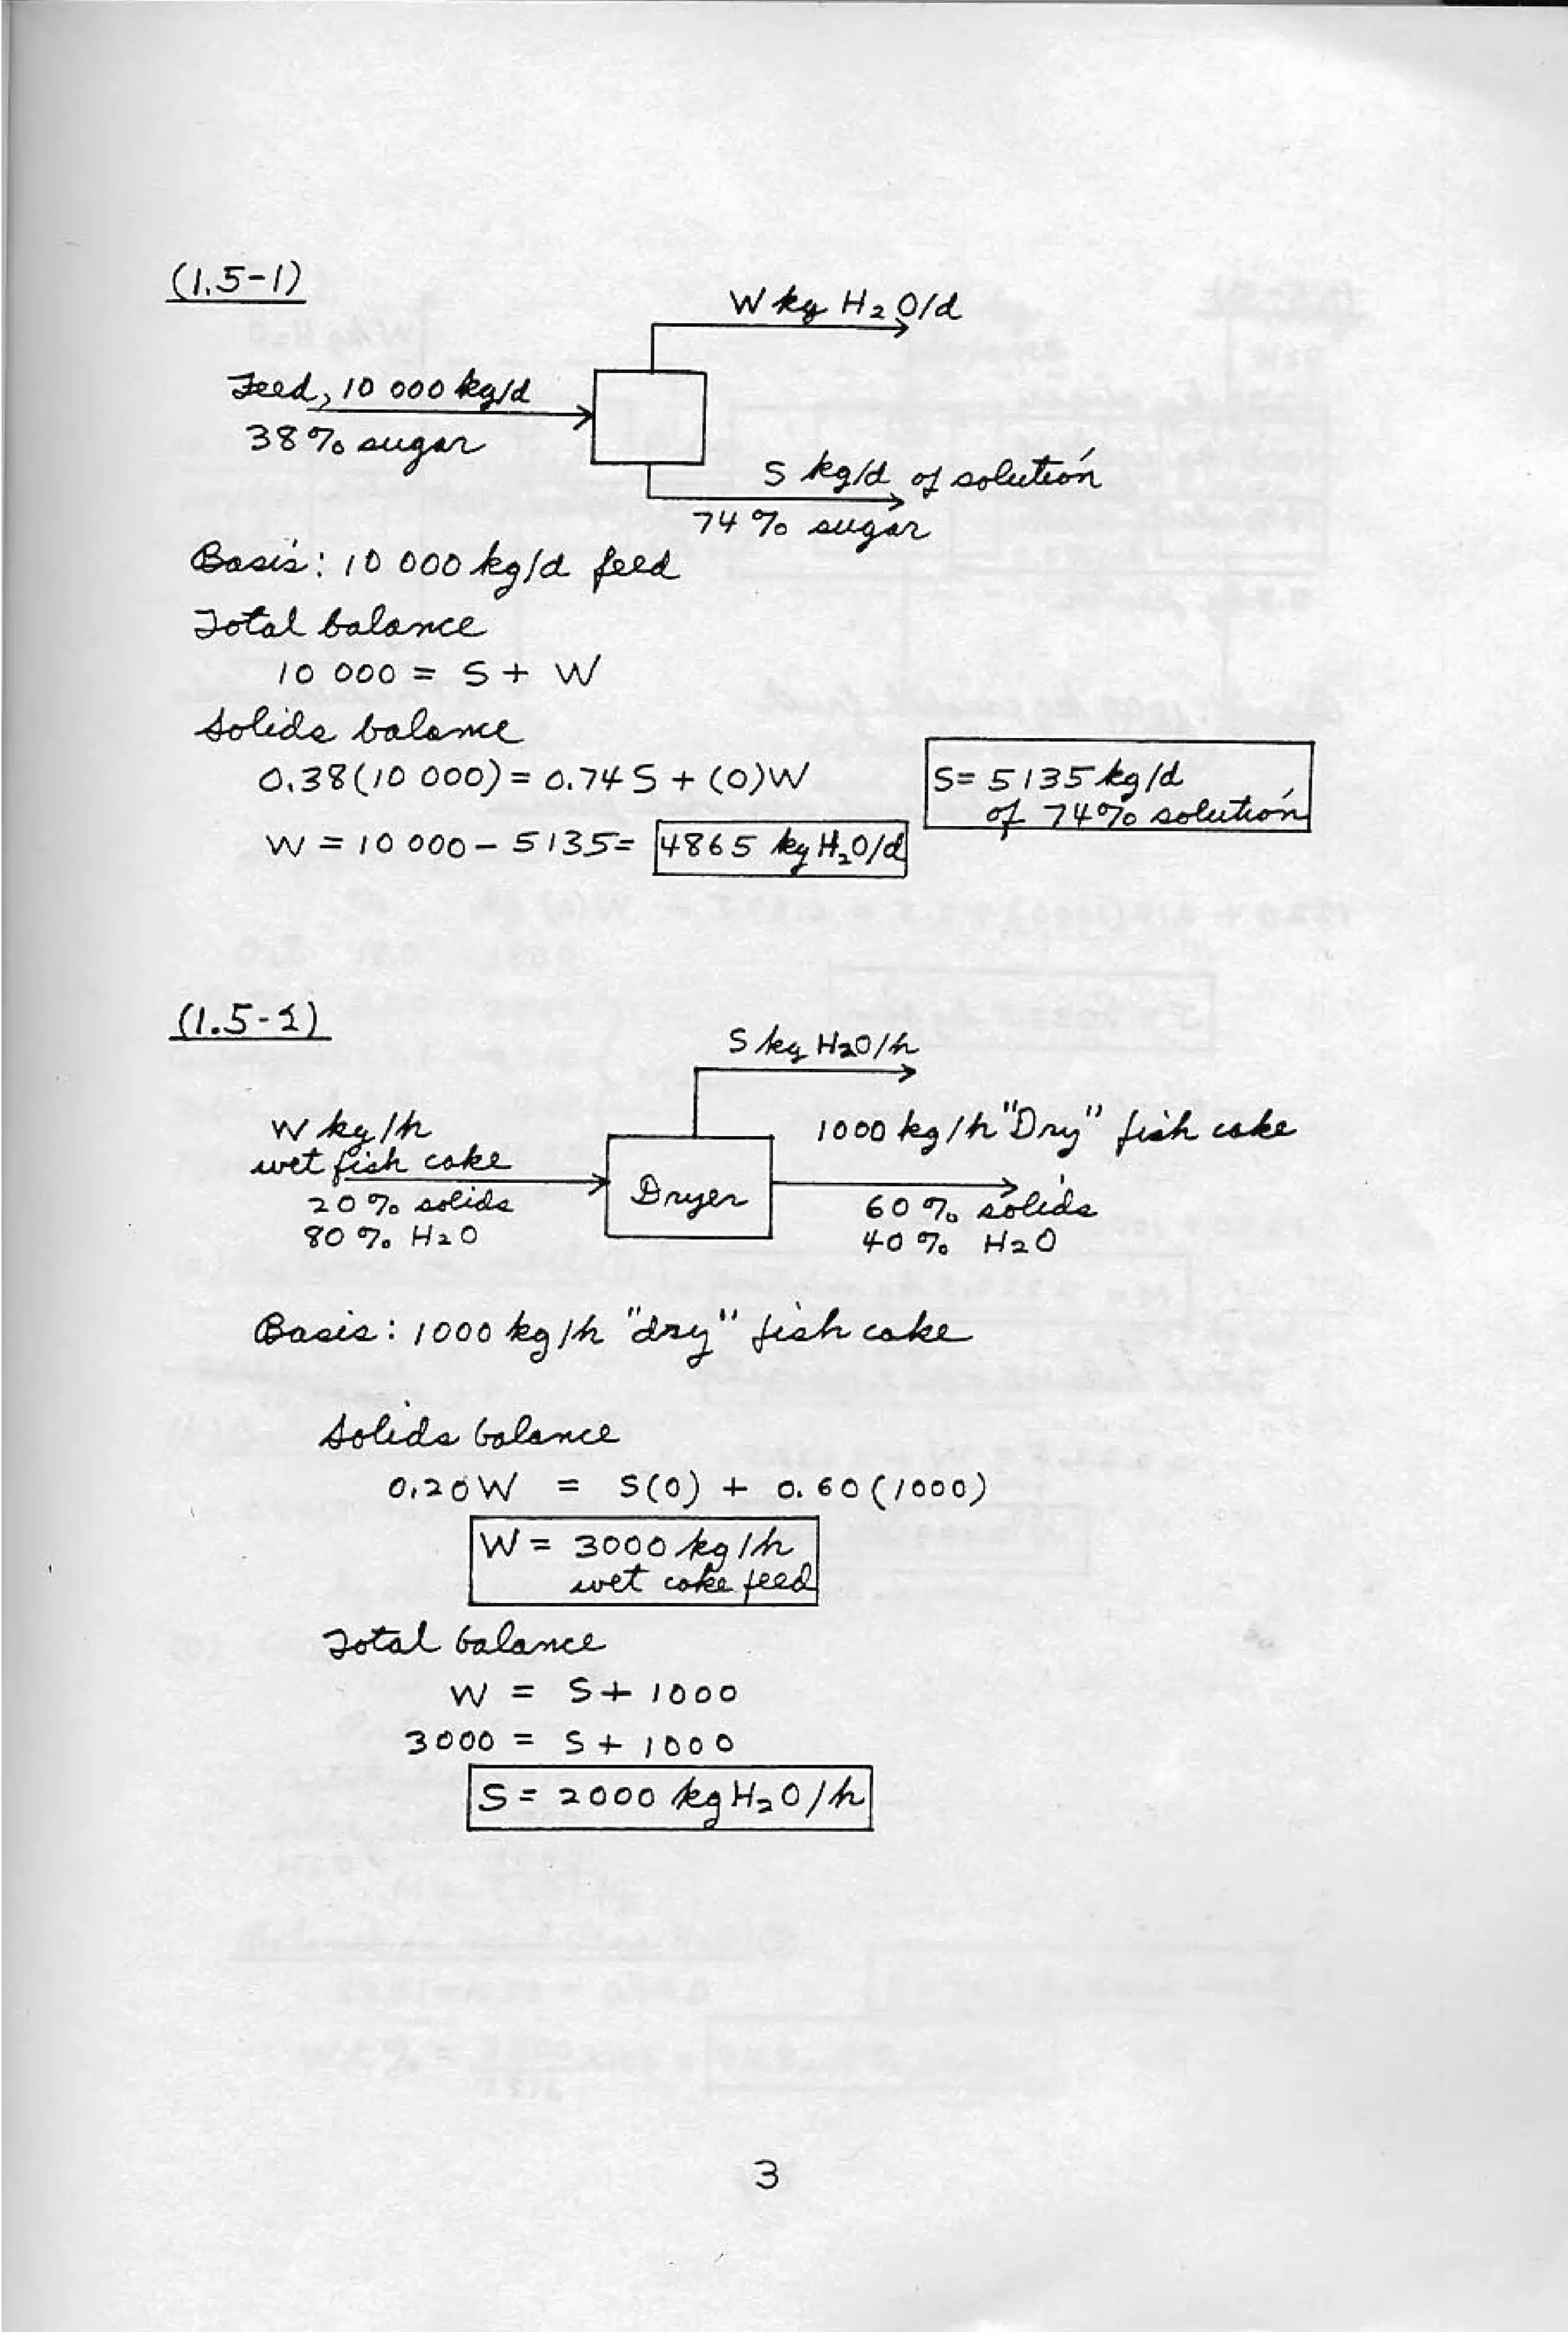 (1.5-1)
W kg H₂O/d
Feed, 10 000 kg/d
38% sugar
S kg/d of solution
74% sugar
Basis: 10 000 kg/d feed
Total balance
10 000 = S + W
Solids balance
0.38(10 000) = 0.74 S + (0)W
S = 5135 kg/d
of 74% solution
W = 10 000 - 5135 = 4865 kg H₂O/d
(1.5-2)
S kg H₂O/h
W kg/h
wet fish cake
20% solids
80% H₂O
Dryer
1000 kg/h "Dry" fish cake
60% solids
40% H₂O
Basis: 1000 kg/h "dry" fish cake
Solids balance
0.20W = S(0) + 0.60(1000)
W = 3000 kg/h
wet cake feed
Total balance
W = S + 1000
3000 = S + 1000
S = 2000 kg H₂O/h
3